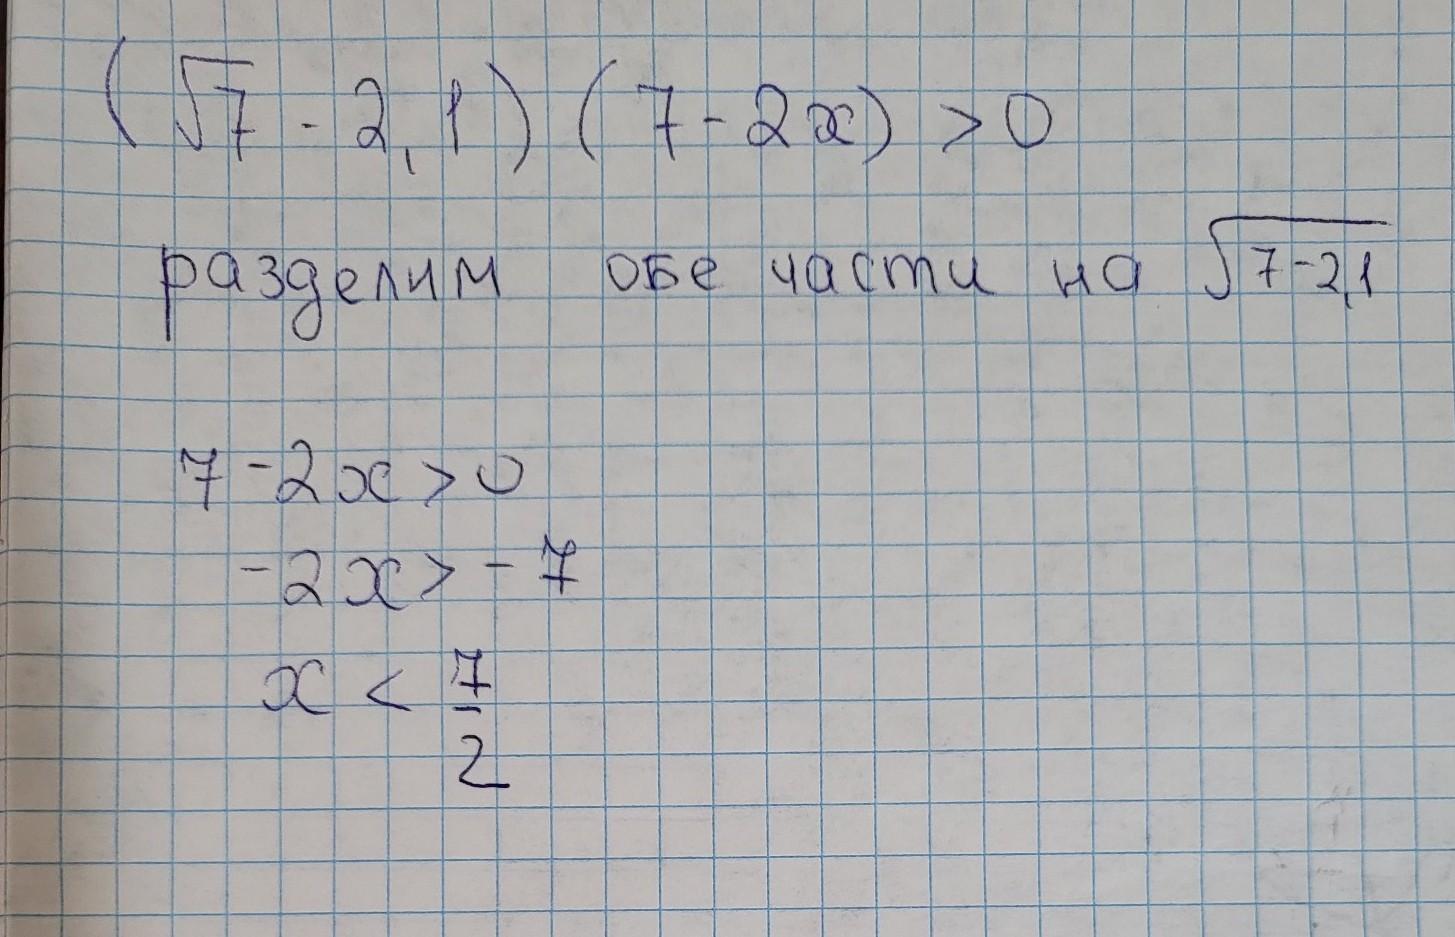 (√7 - 2,1) (7 - 2x) > 0
разделим обе части на √(7-2,1)
7 - 2x > 0
-2x > -7
x < 7/2